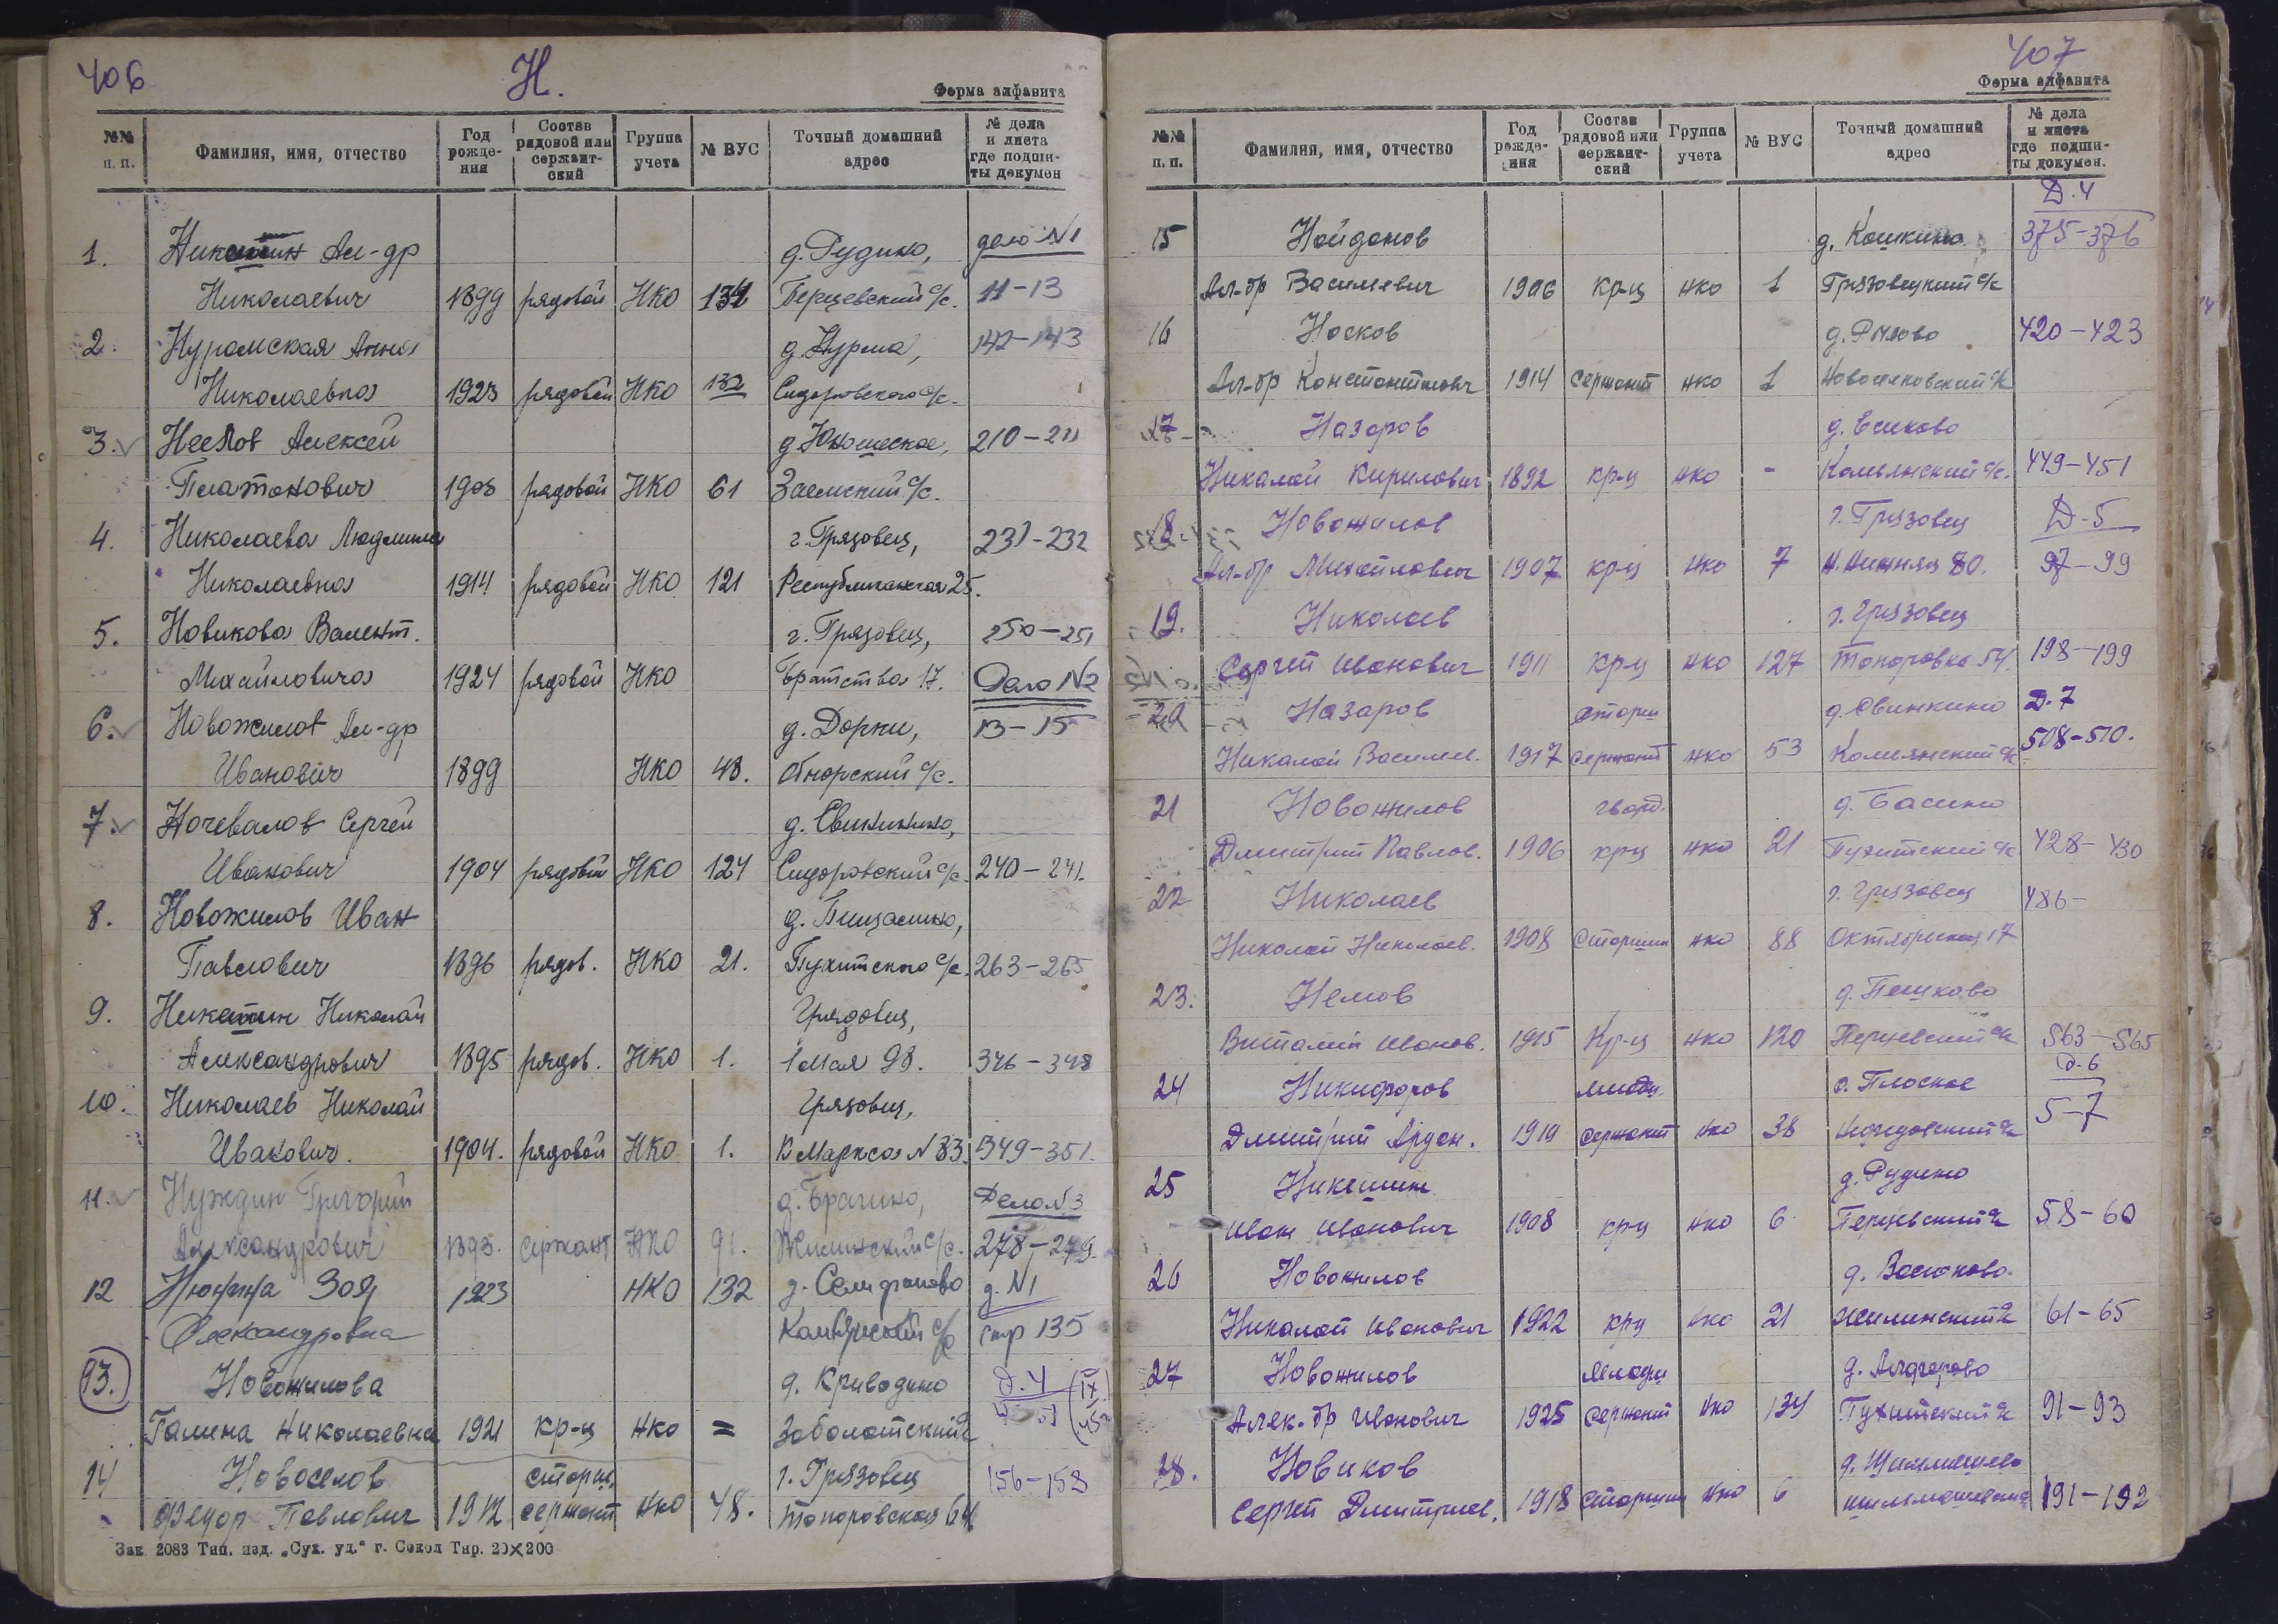 406
Н.
Форма алфавита
№№ п. п. Фамилия, имя, отчество Год рожде-ния Состав рядовой или сержант-ский Группа учета № ВУС Точный домашний адрес № дела и листа где подши-ты докумен
1. Никитин Ал-др д. Рудино, дело №1
Николаевич 1899 рядовой НКО 134 Перцевский с/с. 11-13
2. Нуромская Анна д. Нурма, 142-143
Николаевна 1923 рядовой НКО 132 Сидоровского с/с.
3. Алексей д. Юношеское, 210-211
Платонович 1903 рядовой НКО 61 Заемский с/с.
4. Николаева Людмила г. Грязовец, 231-232
Николаевна 1914 рядовой НКО 121 Республиканская 25.
5. Новикова Валент. г. Грязовец, 250-251
Михайловича 1924 рядовой НКО Братства 17. Дело №2
6. Новожилов Ал-др д. Дорки, 13-15
Иванович 1899 НКО 48. Обнорский с/с.
7. Ночевалов Сергей д. Свинкино,
Иванович 1904 рядовой НКО 124 Сидоровский с/с. 240-241.
8. Новожилов Иван д.
Павлович 1896 рядов. НКО 21. Пухитского с/с. 263-265
9. Николай Грязовец,
Александрович 1895 рядов. НКО 1. 1 Мая 98. 346-348
10. Николаев Николай Грязовец,
Иванович. 1904. рядовой НКО 1. К Маркса №83. 349-351.
11. Нуждин Григорий д. Брагино, Дело №3
Александрович 1893. сержант НКО 91. Жилинский с/с. 278-279.
12 Нюнина Зоя 1923 НКО 132 д. Селифаново д. №1
Александровна Камянский с/с стр 135
13. Новожилова д. Криводино д. 4
Галина Николаевна 1921 кр-ц нко = Заболотский с/с
14 Новоселов старш. г. Грязовец 156-158
Федор Павлович 1912 сержант нко 48. Топоровская 64
Зак. 2083 Тип. изд. „Сух. уд.“ г. Сокол Тир. 20×200
407
Форма алфавита
№№ п. п. Фамилия, имя, отчество Год рожде-ния Состав рядовой или сержант-ский Группа учета № ВУС Точный домашний адрес № дела и листа где подши-ты докумен.
Д. 4
15 Найданов д. Кошкино 375-376
Ал-др Василевич 1906 кр-ц нко 1 Грязовецкий с/с
16 Носков д. 420-423
Ал-др Константинович 1914 сержант нко 1 Новоселковский с/с
17 Назаров д. Есиково
Николай Кирилович 1892 кр-ц нко - Камьянский с/с. 449-451
18 Новожилов г. Грязовец Д-5
Ал-др Михайлович 1907 кр-ц нко 7 80. 97-99
19. Николаев г. Грязовец
Сергей Иванович 1911 кр-ц нко 127 Топоровка 54. 198-199
20 Назаров старш д. Свинкино Д. 7
Николай Василев. 1917 сержант нко 53 Камьянский с/с 508-510.
21 Новожилов гвард. д. Басино
Дмитрий Павлов. 1906 крц нко 21 Пухитский с/с 428-430
22 Николаев г. Грязовец 486-
Николай Николаев. 1908 Старшин нко 88 Октябрьская 17
23. Немов д. Пешково
Виталий Иванов. 1915 Кр-ц нко 120 Перцевский с/с 563-565
Д-6
24 Никифоров младш д. Плоское
Дмитрий 1919 сержант нко 38 5-7
25 д. Рудино
Иван Иванович 1908 кр-ц нко 6 Перцевский с/с 58-60
26 Новожилов д.
Николай Иванович 1922 крц нко 21 Жилинский с/с 61-65
27 Новожилов младш д. Алферово
Алек-др Иванович 1925 сержант нко 134 Пухитский с/с 91-93
28. Новиков д.
Сергей Дмитриев. 1918 старшин нко 6 191-192